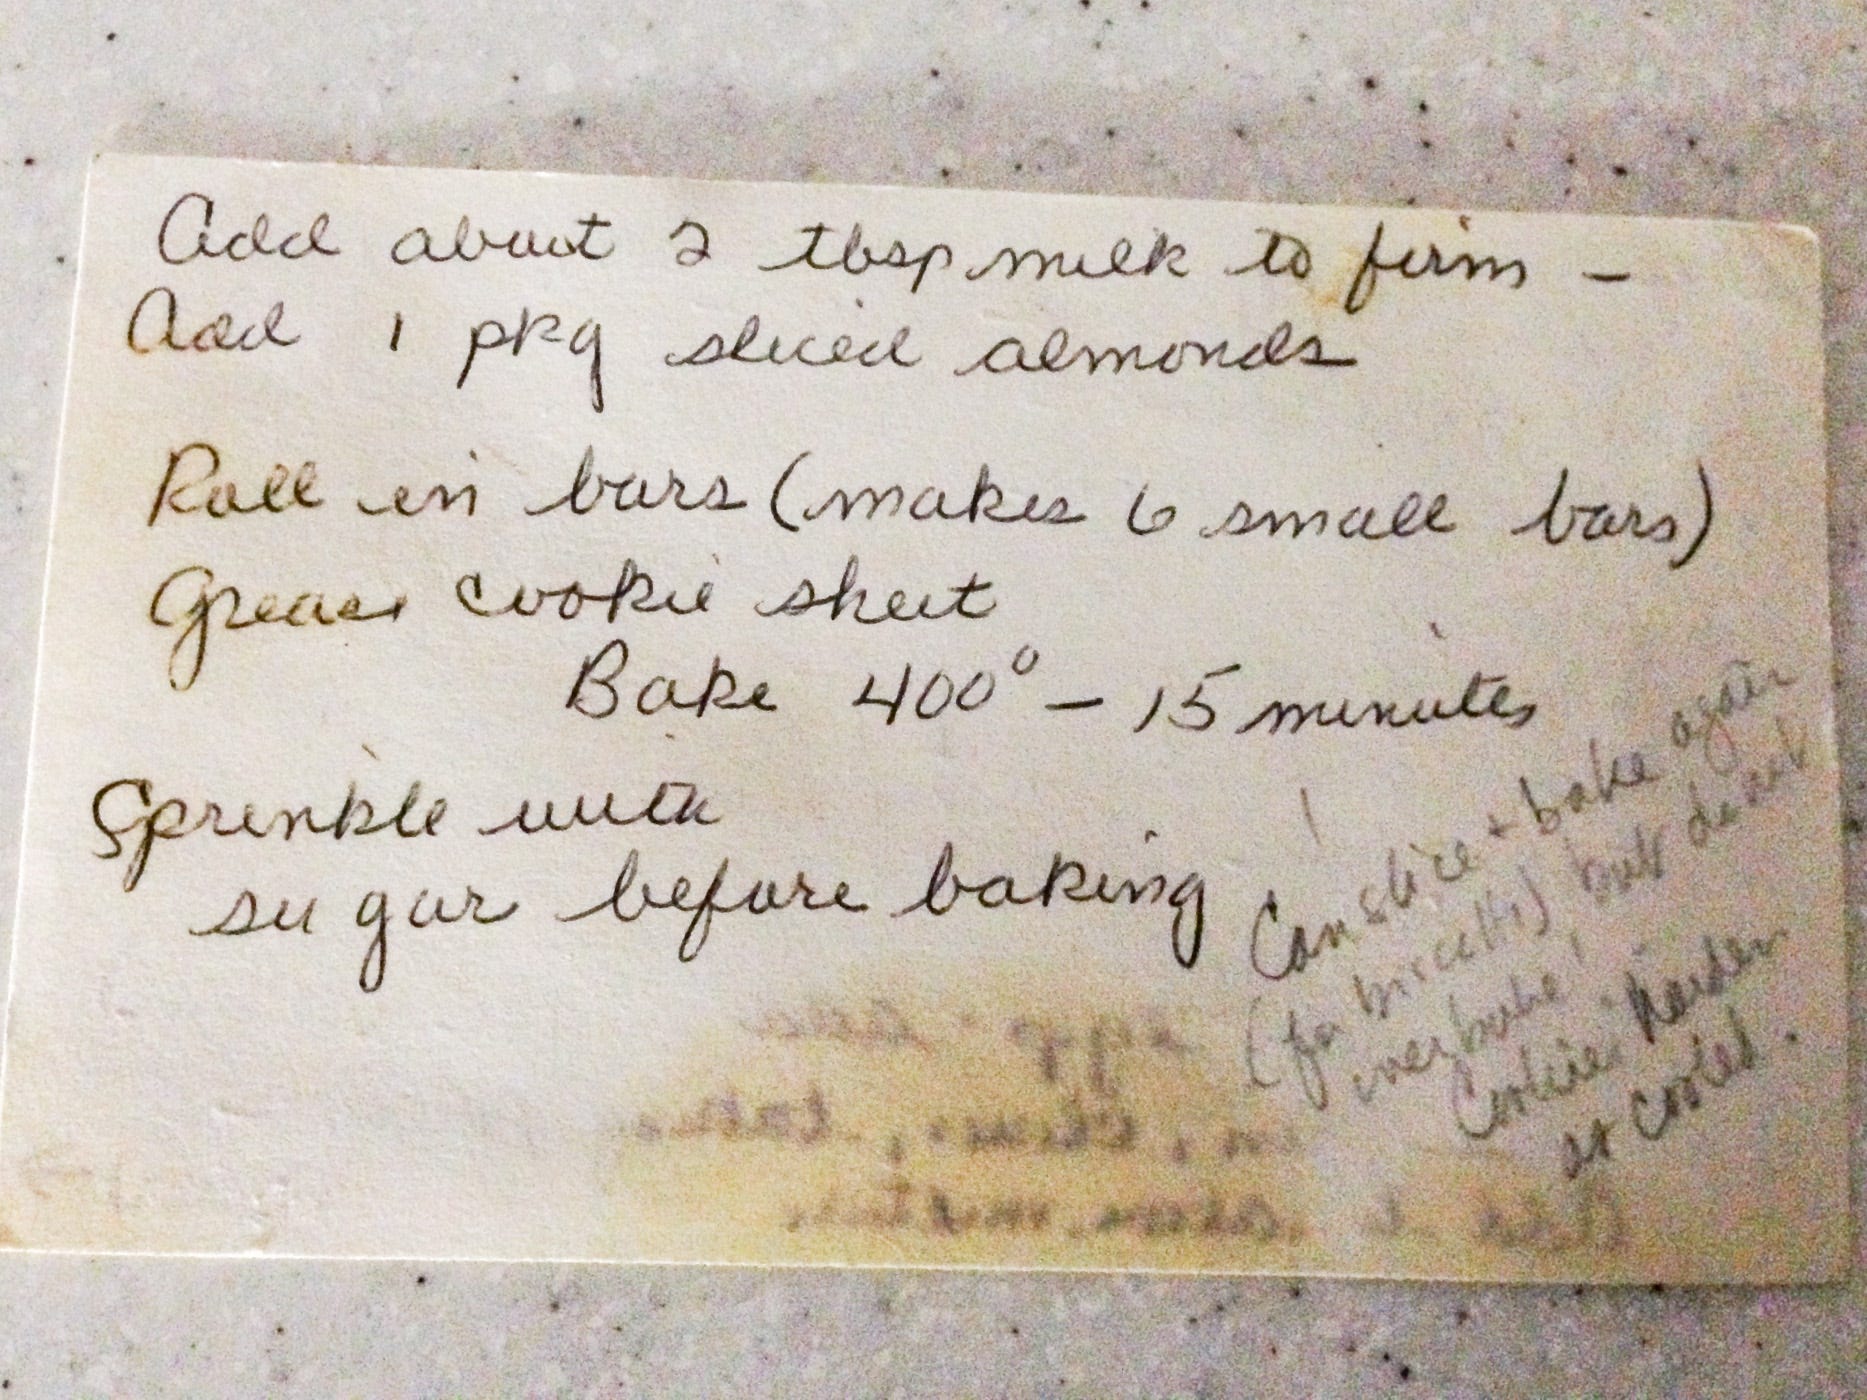 Add about 2 tbsp milk to firm –
Add 1 pkg sliced almonds
Roll in bars (makes 6 small bars)
Grease cookie sheet
Bake 400° – 15 minutes
Sprinkle with
sugar before baking
Can slice + bake again
(for biscotti) but do not
overbake!
Cookies harden
as cooled.